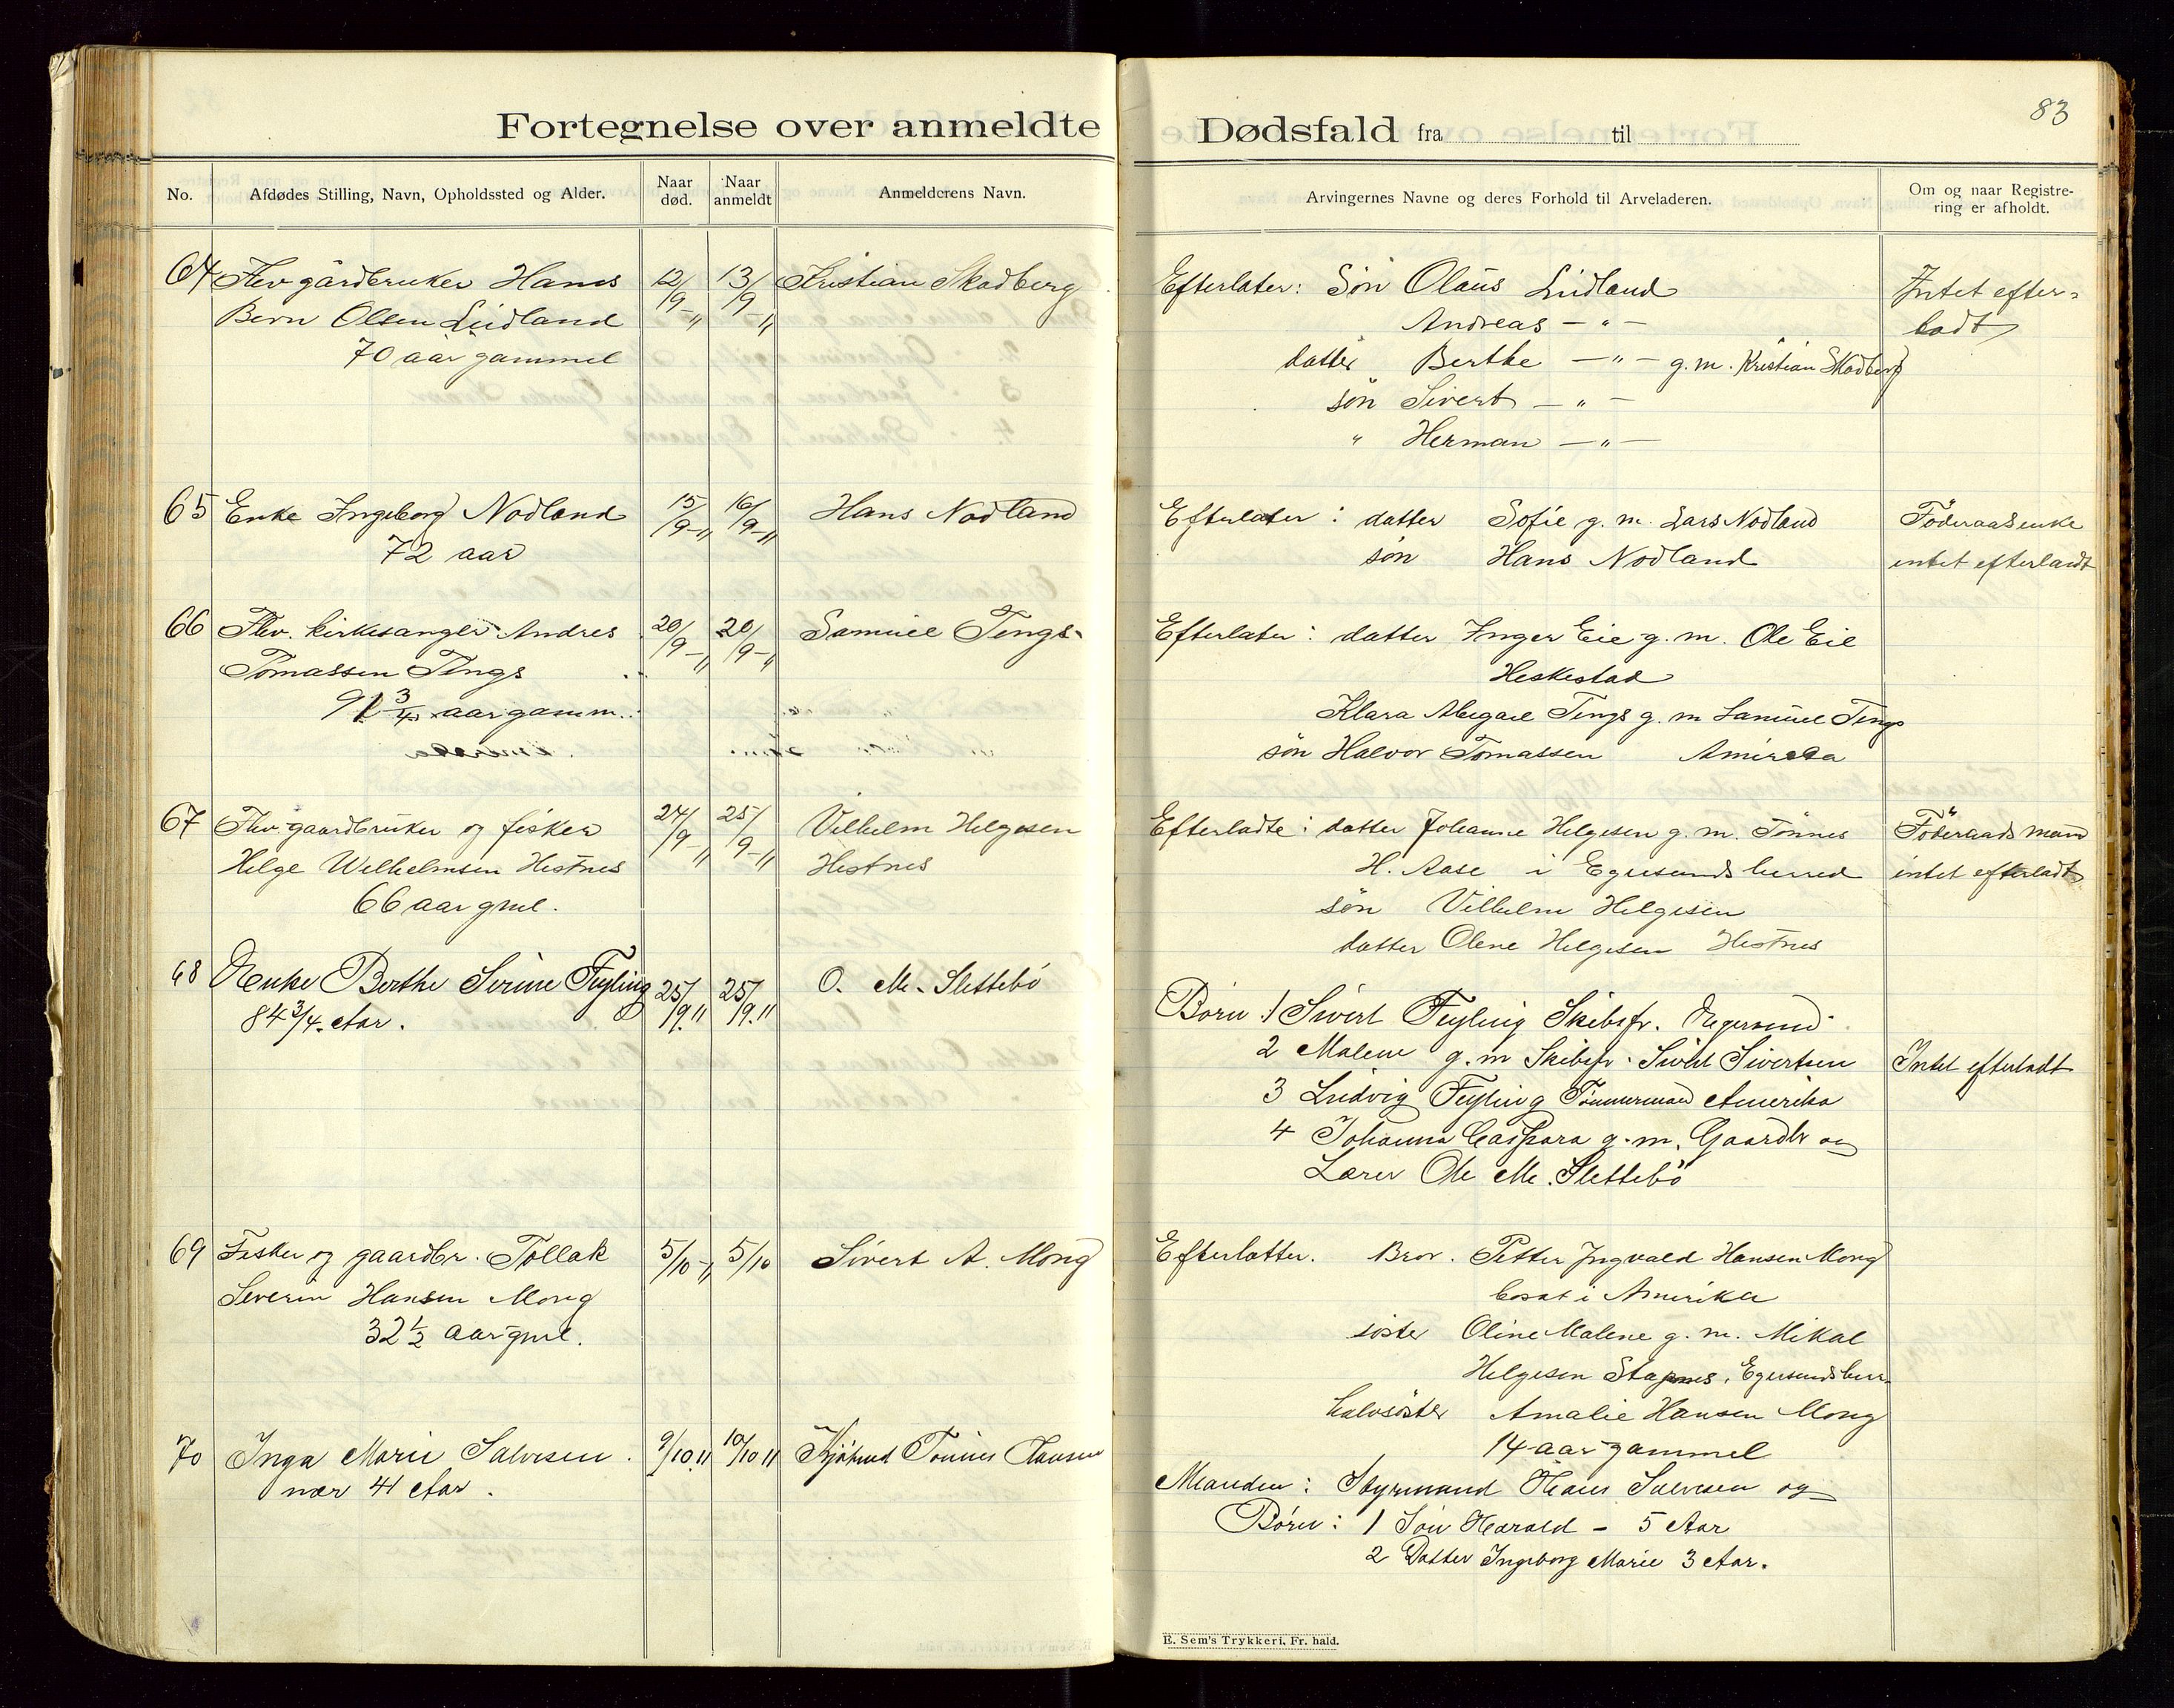 83
Fortegnelse over anmeldte Dødsfald fra til
No. Afdødes Stilling, Navn, Opholdssted og Alder. Naar død. Naar anmeldt Anmelderens Navn. Arvingernes Navne og deres Forhold til Arveladeren. Om og naar Registrering er afholdt.
64 Flev gårdbruker Hans 12/9-" 13/9-" Kristian Skadberg
Bern Olsen Lidland
70 aar gammel
Efterlater: Søn Olaus Lidland
Andreas -"-
datter Berthe -"- g. m. Kristian Skadberg
søn Sivert -"-
" Herman -"-
Intet efter-
ladt
65 Enke Ingeborg Nodland 15/9-" 16/9-" Hans Nodland
72 aar
Efterlater: datter Sofie g. m. Lars Nodland
søn Hans Nodland
Föderaadsenke
intet efterladt
66 Flev. kirkesanger Andres 20/9-" 20/9-" Samuel Tengs.
Tomassen Tengs
91 3/4 aar gamm.
Efterlater: datter Inger Eie g. m. Ole Eie
Heskestad
Klara Abigael Tengs g. m Samuel Tengs
søn Halvor Tomassen Amireka
67 Flev. gaardbruker og fisker 24/9-" 25/9-" Vilhelm Helgesen
Helge Wilhelmsen Hestnes Hestnes
66 aar gml.
Efterladte: datter Johanne Helgesen g. m. Tönnes
H. Aase i Egersunds herred
søn Vilhelm Helgesen
datter Olene Helgesen Hestnes
Föderaads mand
intet efterladt
68 Enke Berthe Serine Feyling 25/9." 25/9." O. M. Slettebö
84 3/4. Aar.
Børn: 1 Sivert Feyling Skibsfr. Egersund
2 Malene g. m Skibsfr. Sivert Sivertsen
3 Ludvig Feyling Tömmermand Amerika
4 Johanna Caspara g. m. Gaardbr og
Lærer Ole M. Slettebö
Intet efterladt
69 Fisker og gaardbr. Tollak 5/10-" 5/10 Sivert A. Mong
Severin Hansen Mong
32 1/2 aar gml.
Efterlatter. Bror. Petter Ingvald Hansen Mong
bosat i Amerika
söster Oline Malene g. m. Mikal
Helgesen Stapnes, Egersundsherr.
halvsöster Amalie Hansen Mong
14 aar gammel
70 Inga Marie Salvesen. 9/10 " 10/10 " Tönnes Hansen
nær 41 Aar.
Manden: Styrmand Hans Salvesen og
Børn: 1 Sön Harald - 5 Aar
2 Datter Ingeborg Marie 3 Aar.
E. Sem's Trykkeri, Fr. hald.